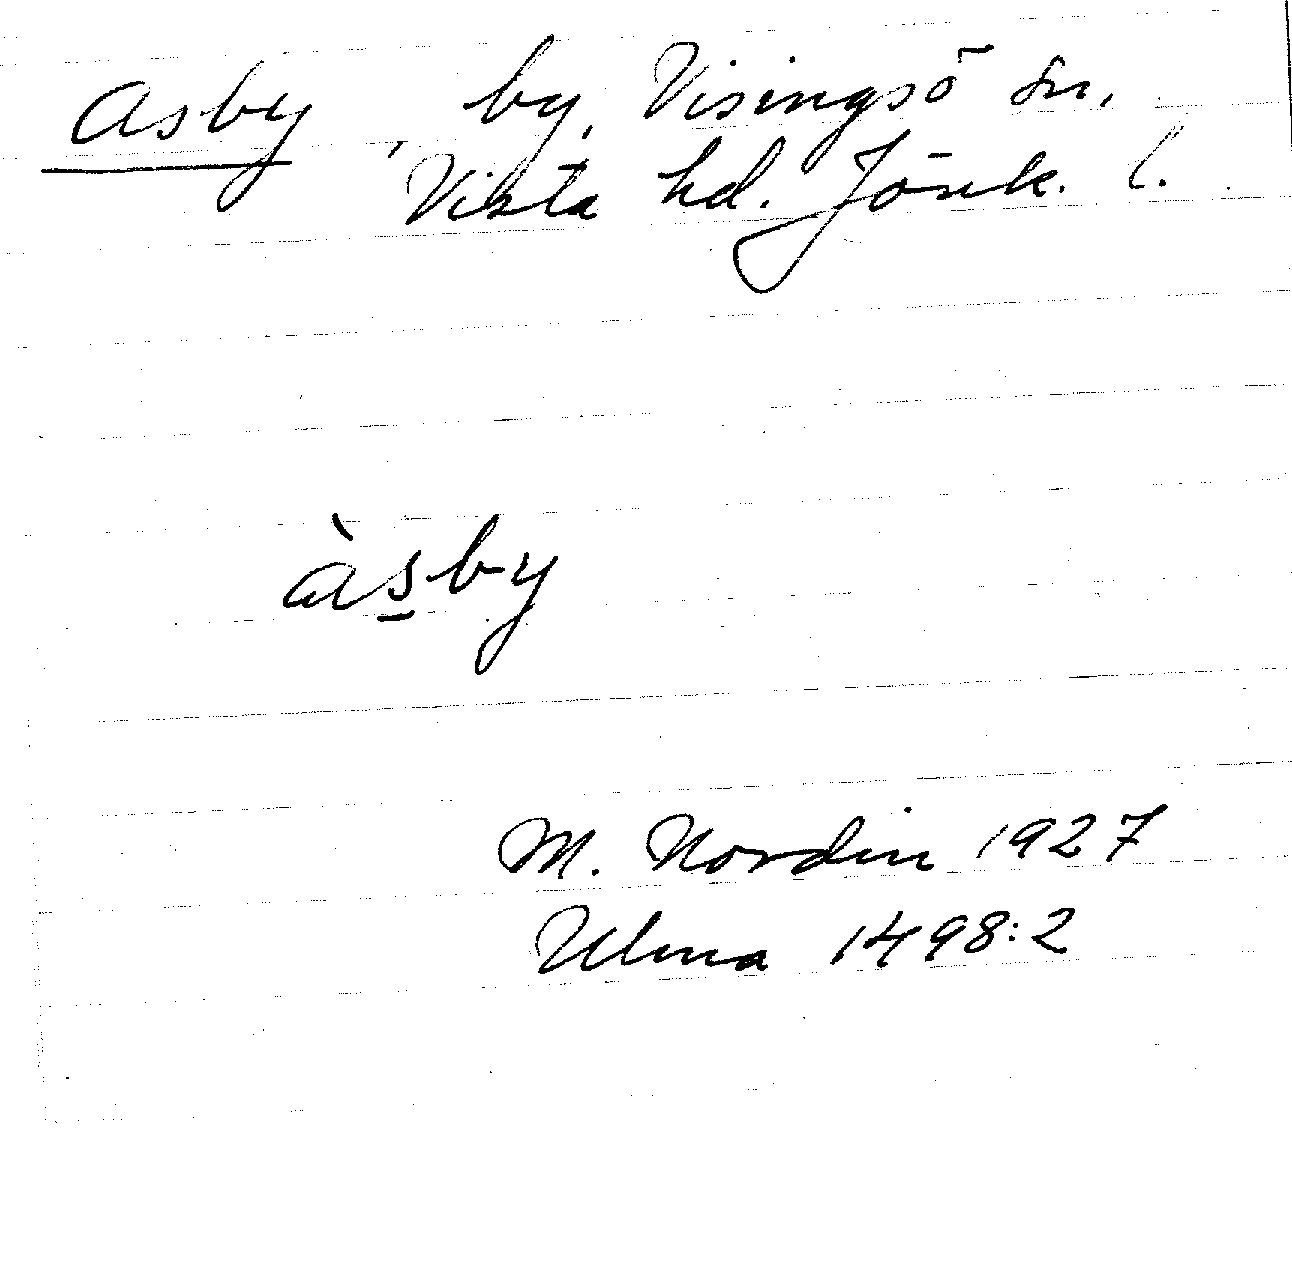 Asby, by, Visingsö sn,
Vista hd. Jönk. l.
àsby
M. Nordin 1927
Ulma 1498:2